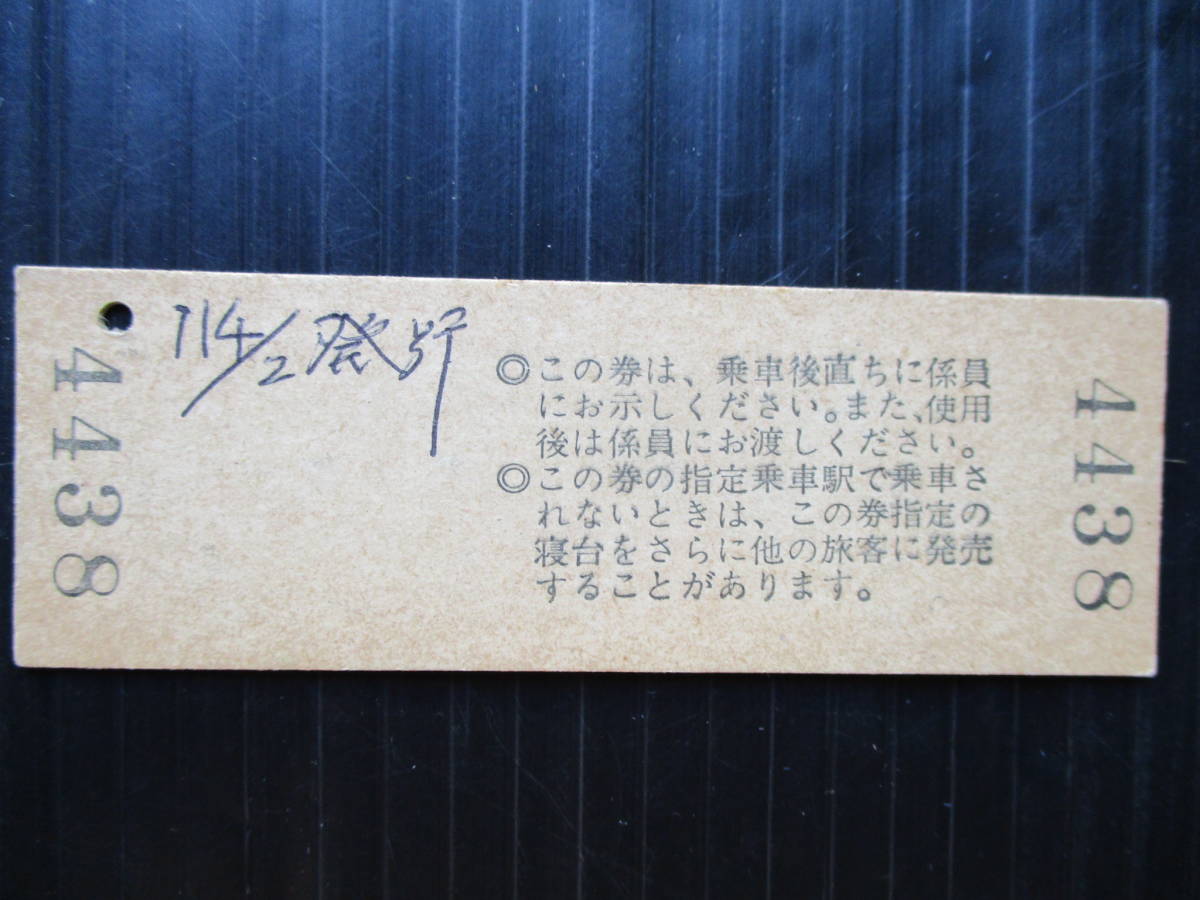 4438
114/2発行
◎この券は、乗車後直ちに係員
にお示しください。また、使用
後は係員にお渡しください。
◎この券の指定乗車駅で乗車さ
れないときは、この券指定の
寝台をさらに他の旅客に発売
することがあります。
4438